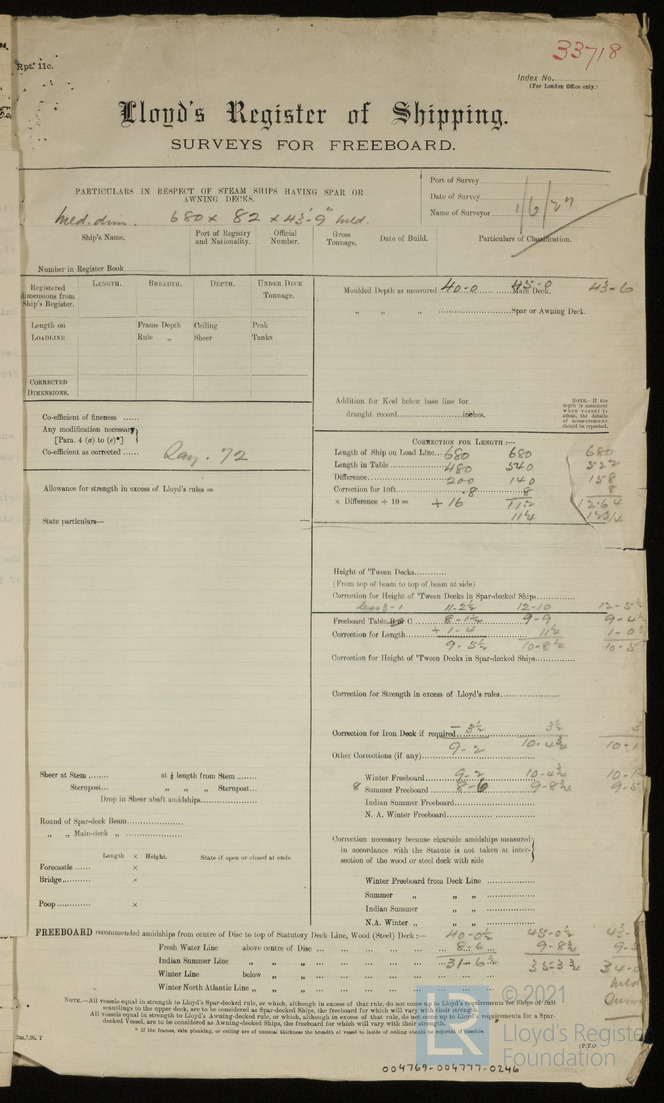 33718
Rpt. 11c.
Index No.
(For London Office only.)
Lloyd's Register of Shipping.
SURVEYS FOR FREEBOARD.
PARTICULARS IN RESPECT OF STEAM SHIPS HAVING SPAR OR
AWNING DECKS.
Port of Survey
Date of Survey
Name of Surveyor
1/6/27
Mld. dim. 680 x 82 x 43'-9" mld.
Ship's Name.
Port of Registry
and Nationality.
Official
Number.
Gross
Tonnage.
Date of Build.
Particulars of Classification.
Number in Register Book
Registered
dimensions from
Ship's Register.
LENGTH.
BREADTH.
DEPTH.
UNDER DECK
TONNAGE.
Length on
LOADLINE
Frame Depth
Rule „
Ceiling
Sheer
Peak
Tanks
CORRECTED
DIMENSIONS.
Co-efficient of fineness ......
Any modification necessary
[Para. 4 (a) to (e)*]
Co-efficient as corrected ...... Say .72
Allowance for strength in excess of Lloyd's rules =
State particulars—
Sheer at Stem ........ at ⅛ length from Stem ........
Sternpost... „ „ „ Sternpost...
Drop in Sheer abaft amidships
Round of Spar-deck Beam
„ „ Main-deck „
Length × Height. State if open or closed at ends.
Forecastle ...... ×
Bridge ×
Poop ×
Moulded Depth as measured 40-0 45-0 Main Deck. 43-6
„ „ „ Spar or Awning Deck.
Addition for Keel below base line for
draught record inches.
NOTE.—If the
depth is measured
when vessel is
afloat, the details
of measurement
should be reported.
CORRECTION FOR LENGTH :—
Length of Ship on Load Line 680 680 680
Length in Table 480 540 522
Difference 200 140 158
Correction for 10ft. .8 .8 8
× Difference ÷ 10 = + 16 11.2 12.64
11¼ 12¾
Height of 'Tween Decks
(From top of beam to top of beam at side)
Correction for Height of 'Tween Decks in Spar-decked Ships
11-2½ 12-10
Freeboard Table B or C 8-1½ 9-9
Correction for Length + 1-4 11½
9-5½ 10-8½ 10-5
Correction for Height of 'Tween Decks in Spar-decked Ships
Correction for Strength in excess of Lloyd's rules
Correction for Iron Deck if required - 3½ 3½
9-2 10-4¾
Other Corrections (if any)
Winter Freeboard 9-2 10-4¾
8 Summer Freeboard 8-6 9-8¾
Indian Summer Freeboard
N. A. Winter Freeboard
Correction necessary because clearside amidships measured
in accordance with the Statute is not taken at inter-
section of the wood or steel deck with side
Winter Freeboard from Deck Line
Summer „ „ „
Indian Summer „ „
N.A. Winter „ „ „
FREEBOARD recommended amidships from centre of Disc to top of Statutory Deck Line, Wood (Steel) Deck :— 40-0½ 45-0½
Fresh Water Line above centre of Disc ... 8-6 9-8¾
Indian Summer Line „ „ „ 31-6½ 35-3¾
Winter Line below „ „
Winter North Atlantic Line „ „ „
NOTE.—All vessels equal in strength to Lloyd's Spar-decked rule, or which, although in excess of that rule, do not come up to Lloyd's requirements for Ships of full
scantlings to the upper deck, are to be considered as Spar-decked Ships, the freeboard for which will vary with their strength.
All vessels equal in strength to Lloyd's Awning-decked rule, or which, although in excess of that rule, do not come up to Lloyd's requirements for a Spar-
decked Vessel, are to be considered as Awning-decked Ships, the freeboard for which will vary with their strength.
* If the frames, skin planking, or ceiling are of unusual thickness the breadth of vessel to inside of ceiling should be reported if possible.
[P.T.O
© 2021
Lloyd's Register
Foundation
004769-004777-0246